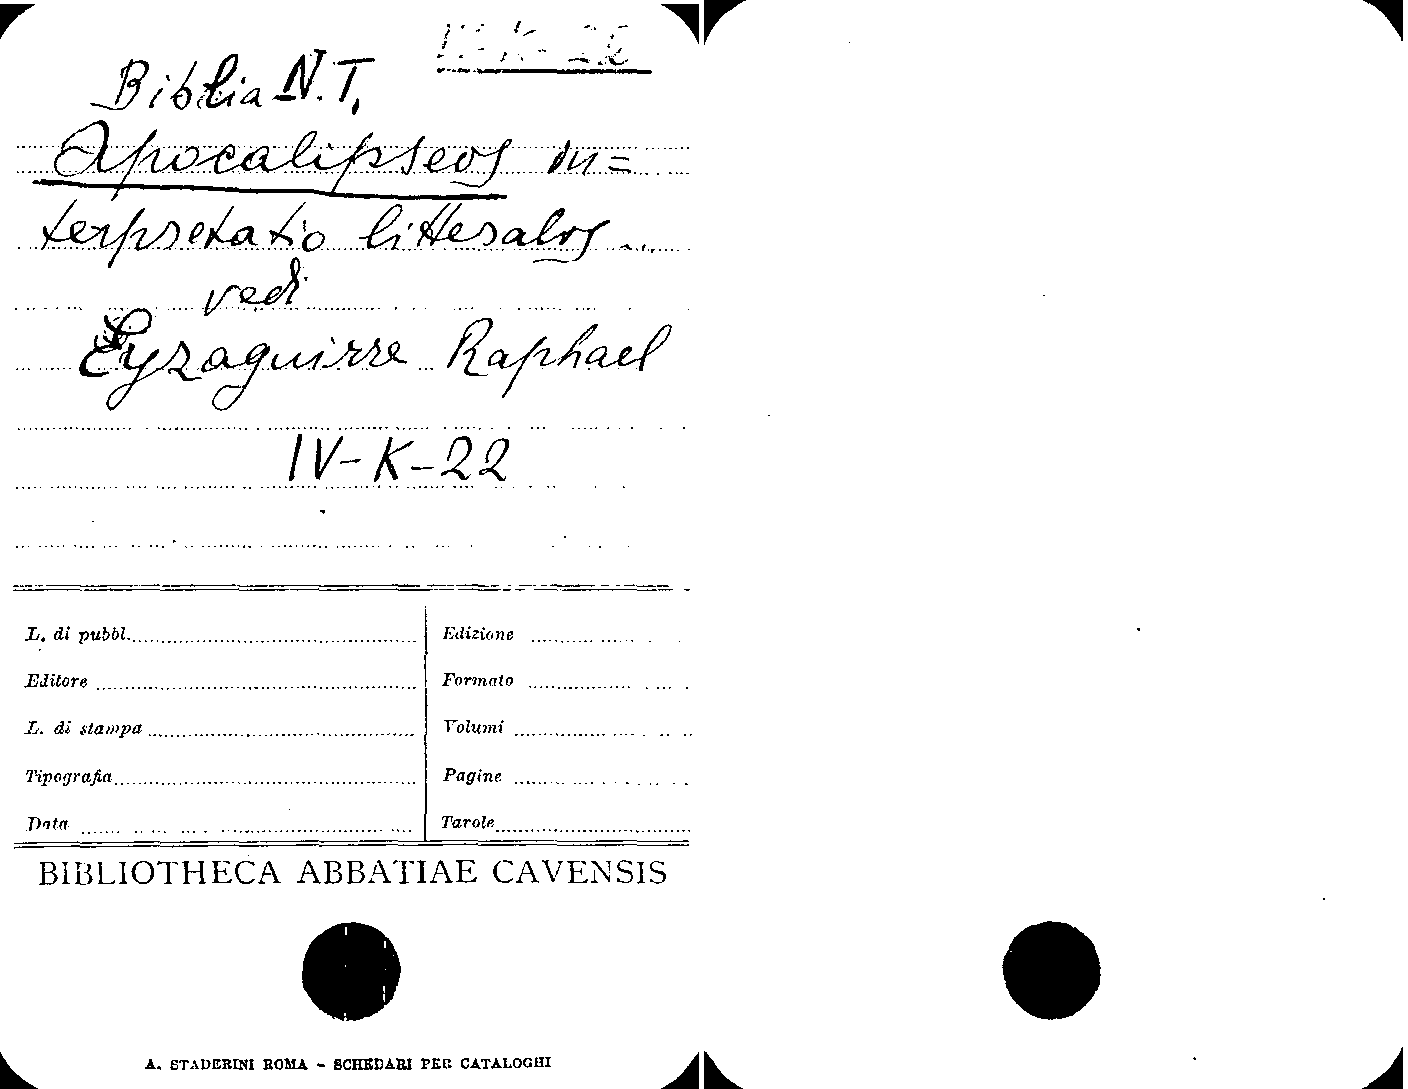 Biblia N.T.
Apocalipseos in=
terpretatio litteralos ...
vedi
Eyzaguirre Raphael
IV-K-22
L. di pubbl.
Edizione
Editore
Formato
L. di stampa
Volumi
Tipografia
Pagine
Data
Tavole
BIBLIOTHECA ABBATIAE CAVENSIS
A. STADERINI ROMA - SCHEDARI PER CATALOGHI